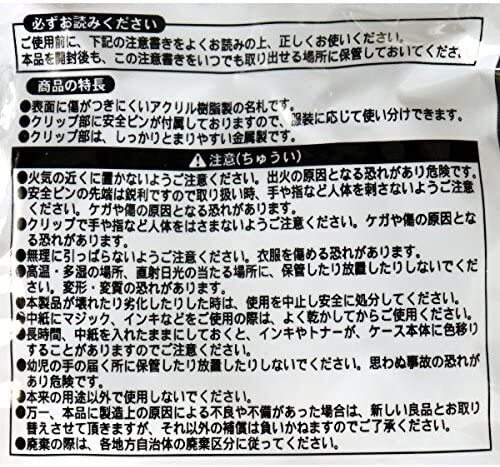 必ずお読みください
ご使用前に、下記の注意書きをよくお読みの上、正しくお使いください。
本品を開封後も、この注意書きをいつでも取り出せる場所に保管しておいてください。
商品の特長
●表面に傷がつきにくいアクリル樹脂製の名札です。
●クリップ部に安全ピンが付属しておりますので、服装に応じて使い分けできます。
●クリップ部は、しっかりとまりやすい金属製です。
⚠注意(ちゅうい)
●火気の近くに置かないようご注意ください。出火の原因となる恐れがあり危険です。
●安全ピンの先端は鋭利ですので取り扱い時、手や指など人体を刺さないようご注意ください。ケガや傷の原因となる恐れがあります。
●クリップで手や指など人体をはさまないようご注意ください。ケガや傷の原因とな
る恐れがあります。
●無理に引っぱらないようご注意ください。衣服を傷める恐れがあります。
●高温・多湿の場所、直射日光の当たる場所に、保管したり放置したりしないでくだ
さい。変形・変質の恐れがあります。
●本製品が壊れたり劣化したりした時は、使用を中止し安全に処分してください。
●中紙にマジック、インキなどをご使用の際は、よく乾かしてからご使用ください。
●長時間、中紙を入れたままにしておくと、インキやトナーが、ケース本体に色移り
することがありますのでご注意ください。
●幼児の手の届く所に保管したり放置したりしないでください。思わぬ事故の恐れが
あり危険です。
●本来の用途以外で使用しないでください。
●万一、本品に製造上の原因による不良や不備があった場合は、新しい良品とお取り
替えさせて頂きますが、それ以外の補償は負いかねますのでご了承ください。
●廃棄の際は、各地方自治体の廃棄区分に従ってください。